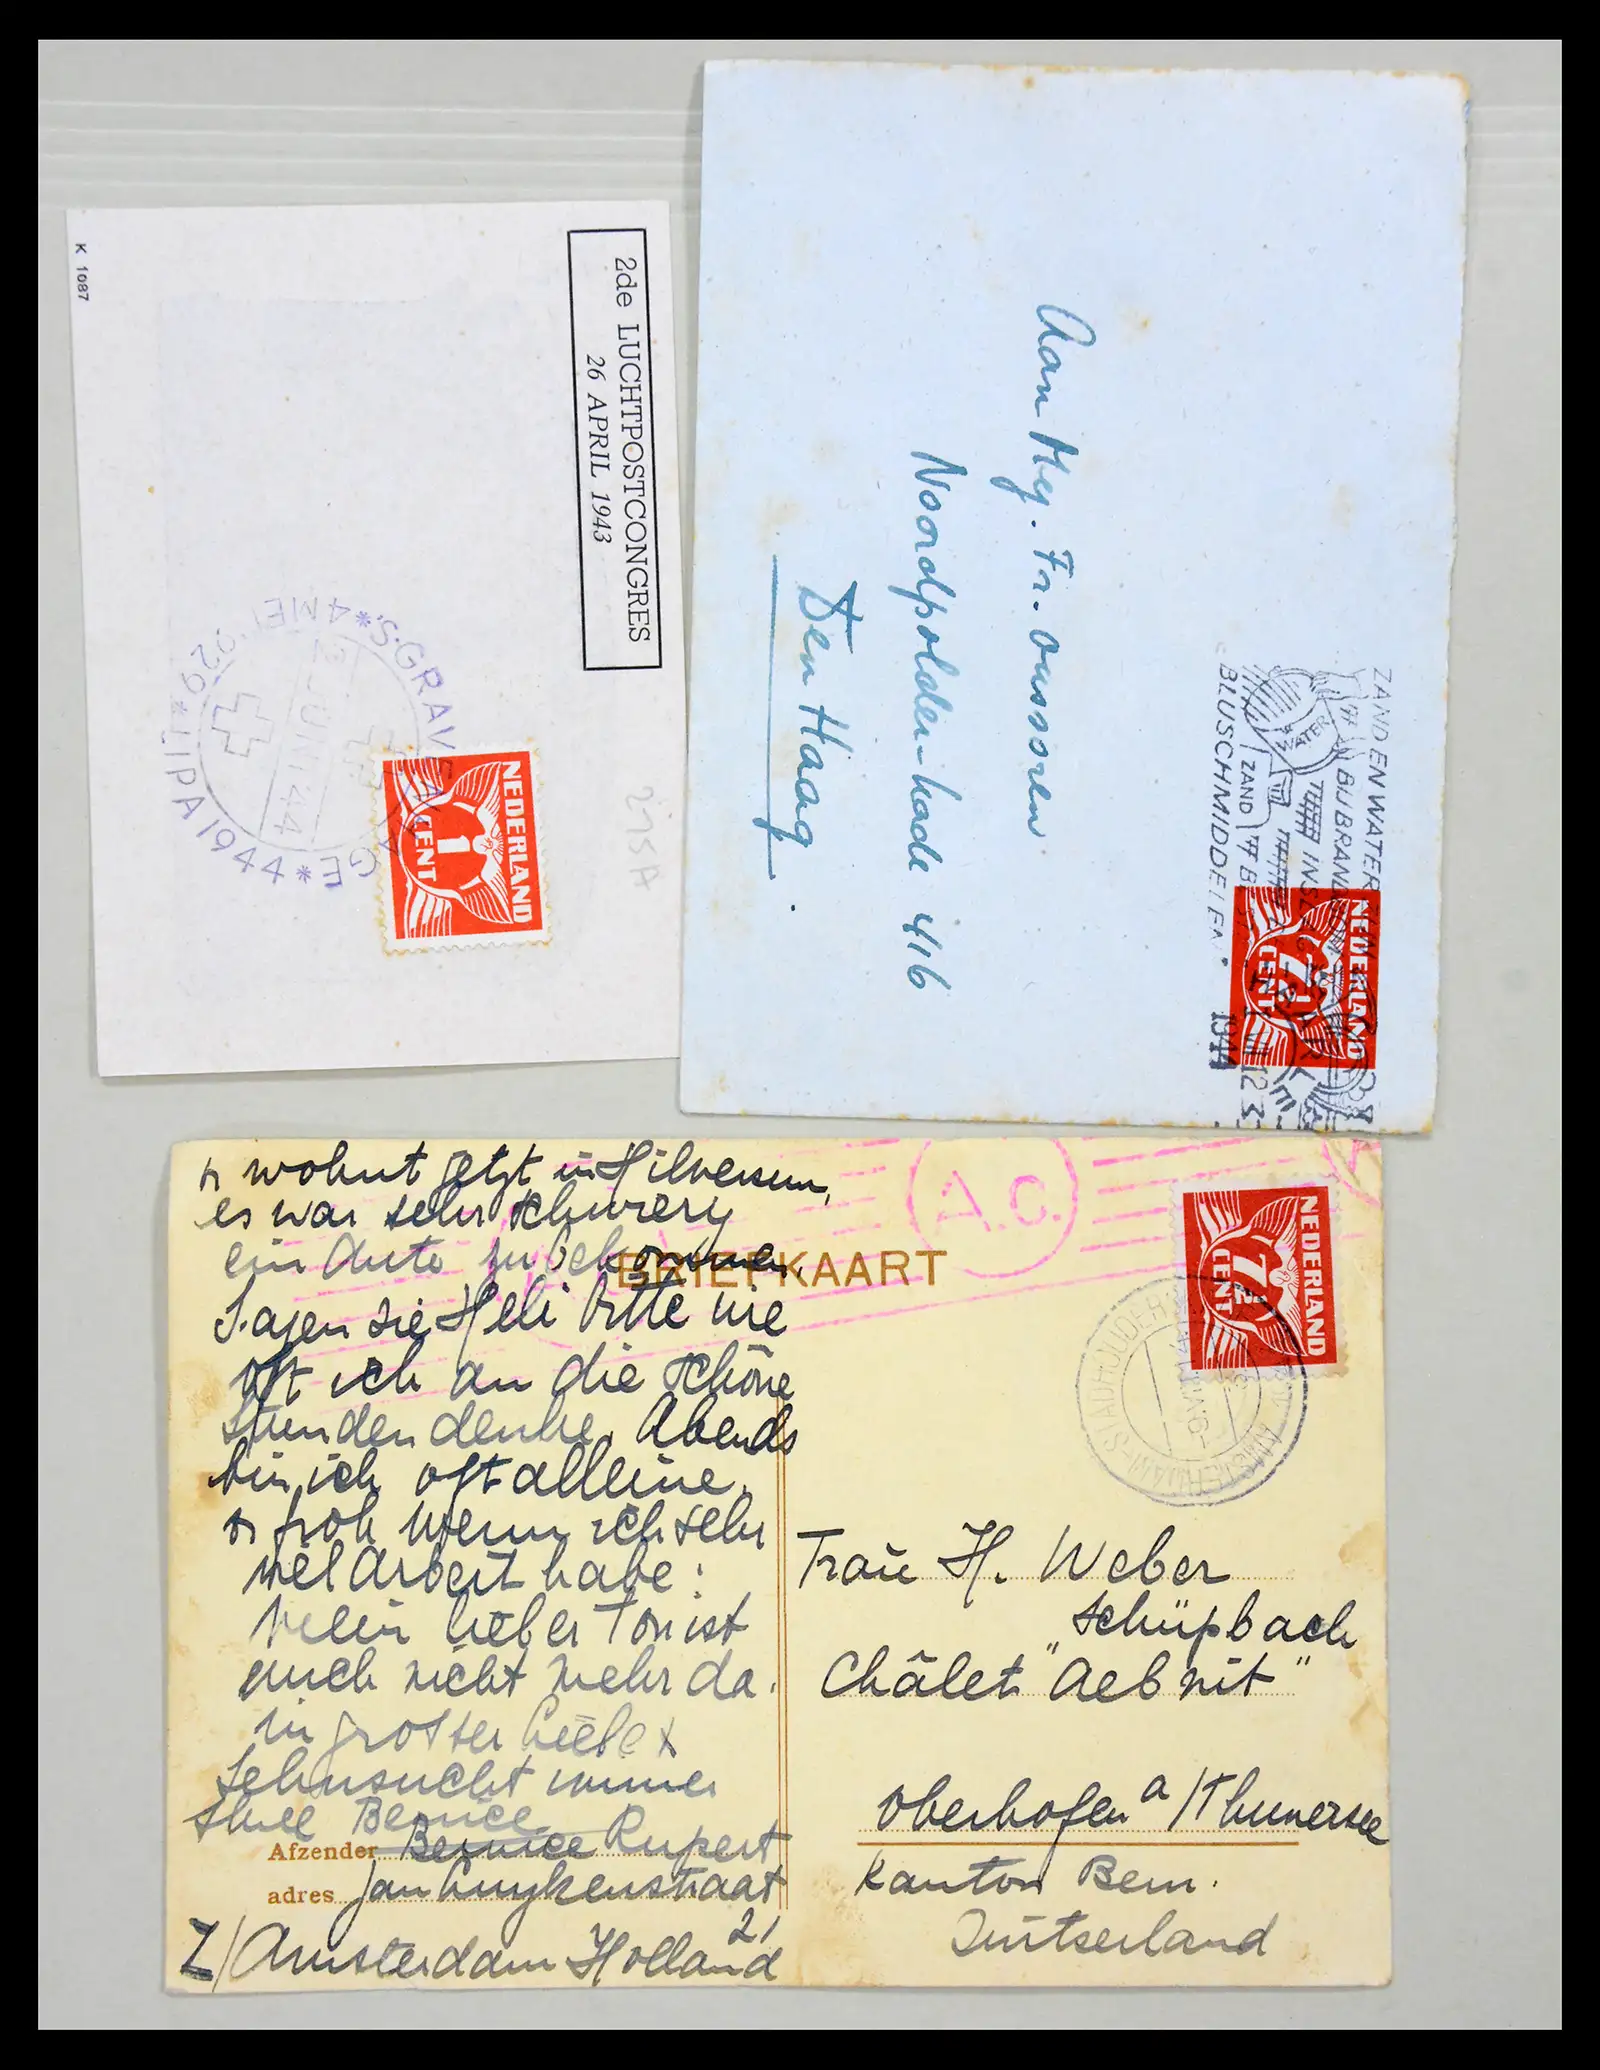 K 1087
2de LUCHTPOSTCONGRES
26 APRIL 1943
'S-GRAVENHAGE * LIPA 1944 * 29
4 MEI
NEDERLAND
1
CENT
215A
Aan Mej. Fr.
Noordpolder-kade 416
Den Haag.
ZAND EN WATER
BIJ BRAND
WATER
ZAND
BLUSCHMIDDELEN.
NEDERLAND
7½
CENT
1944
wohnt jetzt in Hilversum,
es war sehr schwierig
ein Auto zu bekommen.
Sagen sie Heli bitte wie
oft ich an die schöne
Stunden denke. Abends
bin ich oft alleine,
froh wenn ich sehr
viel Arbeit habe:
mein lieber Ton ist
auch nicht mehr da.
in grosser Liebe +
Sehnsucht immer
Bernice
A.C.
BRIEFKAART
NEDERLAND
7½
CENT
AMSTERDAM-STADHOUDERSKADE
Frau H. Weber
Schüpbach
Châlet "Aebnit"
Oberhofen a/Thunersee
Kanton Bern.
Zwitserland
Afzender Bernice Rupert
adres Jan Luykenstraat
21
Z/Amsterdam Holland